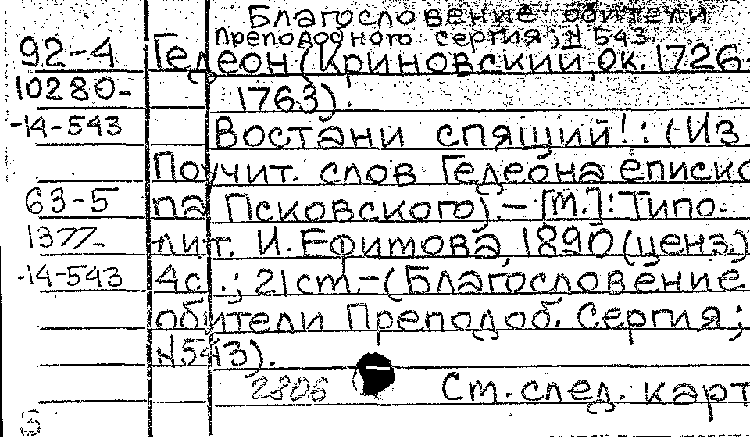 Благословение обители
Преподобного Сергия; N 543
92-4 Гедеон (Криновский, ок. 1726-
10280- 1763).
-14-543 Востани спящий!: (Из
Поучит. слов Гедеона еписко
63-5 па Псковского). - [М.]: Типо-
1377- лит. И. Ефимова, 1890 (ценз.)
-14-543 4с.; 21см. - (Благословение
обители Преподоб. Сергия;
N543).
2806 См. след. карт